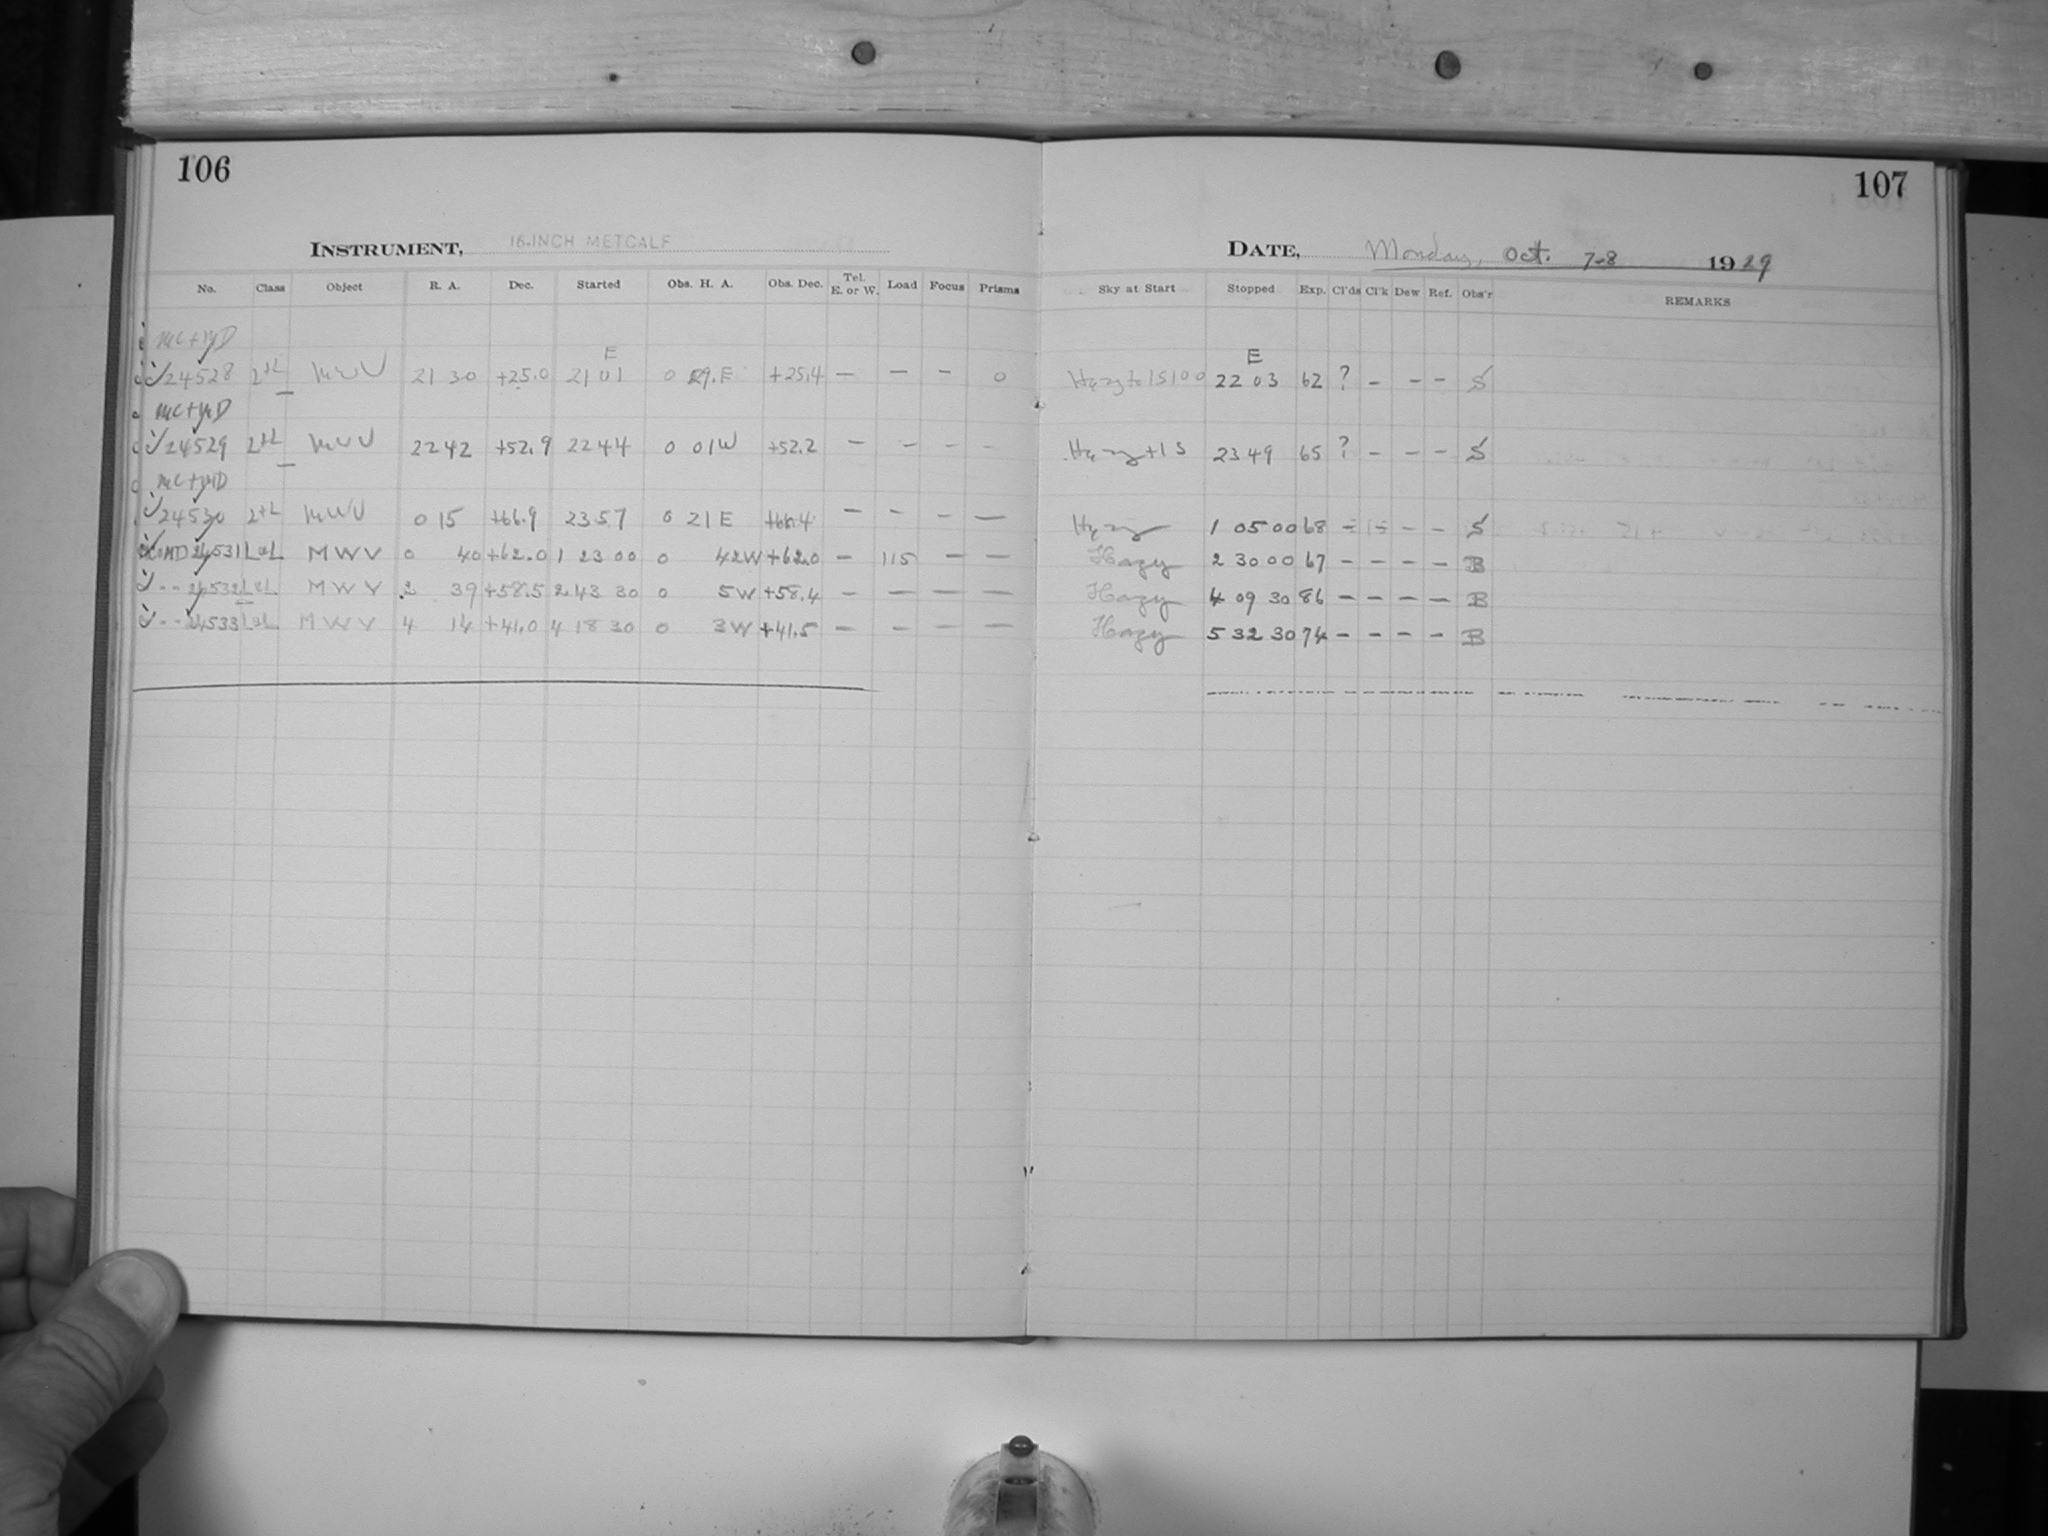 106
INSTRUMENT, 16-INCH METCALF
No. Class Object R. A. Dec. Started Obs. H. A. Obs. Dec. Tel. E. or W. Load Focus Prisms
MC+MD
E
24528 L+L MWV 21 30 +25.0 21 01 0 29.E +25.4 — — – 0
MC+MD
24529 L+L MWV 22 42 +52.9 22 44 0 01W +52.2 – – – –
MC+MD
24530 L+L MWV 0 15 +66.9 23 57 0 21E +66.4 – – – —
24531 L+L MWV 0 40 +62.0 1 23 00 0 42W +62.0 – 115 — —
" - - 24532 L+L MWV 2 39 +58.5 2 43 30 0 5W +58.4 — — — —
" - - 24533 L+L MWV 4 14 +41.0 4 18 30 0 3W +41.5 — — — —
107
DATE, Monday, Oct. 7-8 1929
Sky at Start Stopped Exp. Cl'ds Cl'k Dew Ref. Obs'r REMARKS
E
Hazy 22 03 62 ? – – – S
Hazy 23 49 65 ? – – – S
Hazy 1 05 00 68 – – S
Hazy 2 30 00 67 – – – – B
Hazy 4 09 30 86 – – – – B
Hazy 5 32 30 74 – – – – B